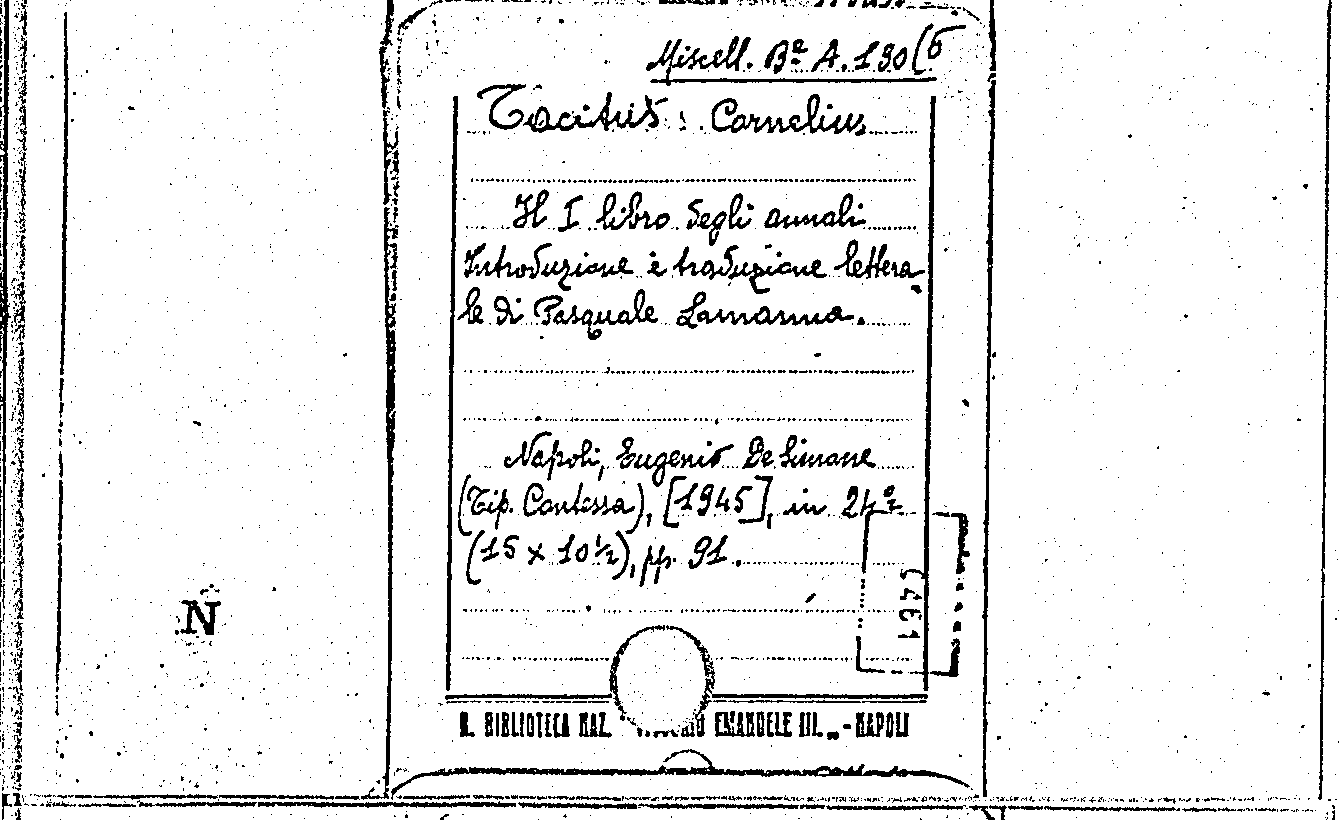 Miscell. Bª A. 130(6
Tacitus: Cornelius
Il I libro degli annali
Introduzione e traduzione lettera-
le di Pasquale Lamanna.
Napoli, Eugenio De Simone
(Tip. Contessa), [1945], in 24º
(15 x 10½), pp. 91.
N
R. BIBLIOTECA NAZ. EMANUELE III. „ - NAPOLI